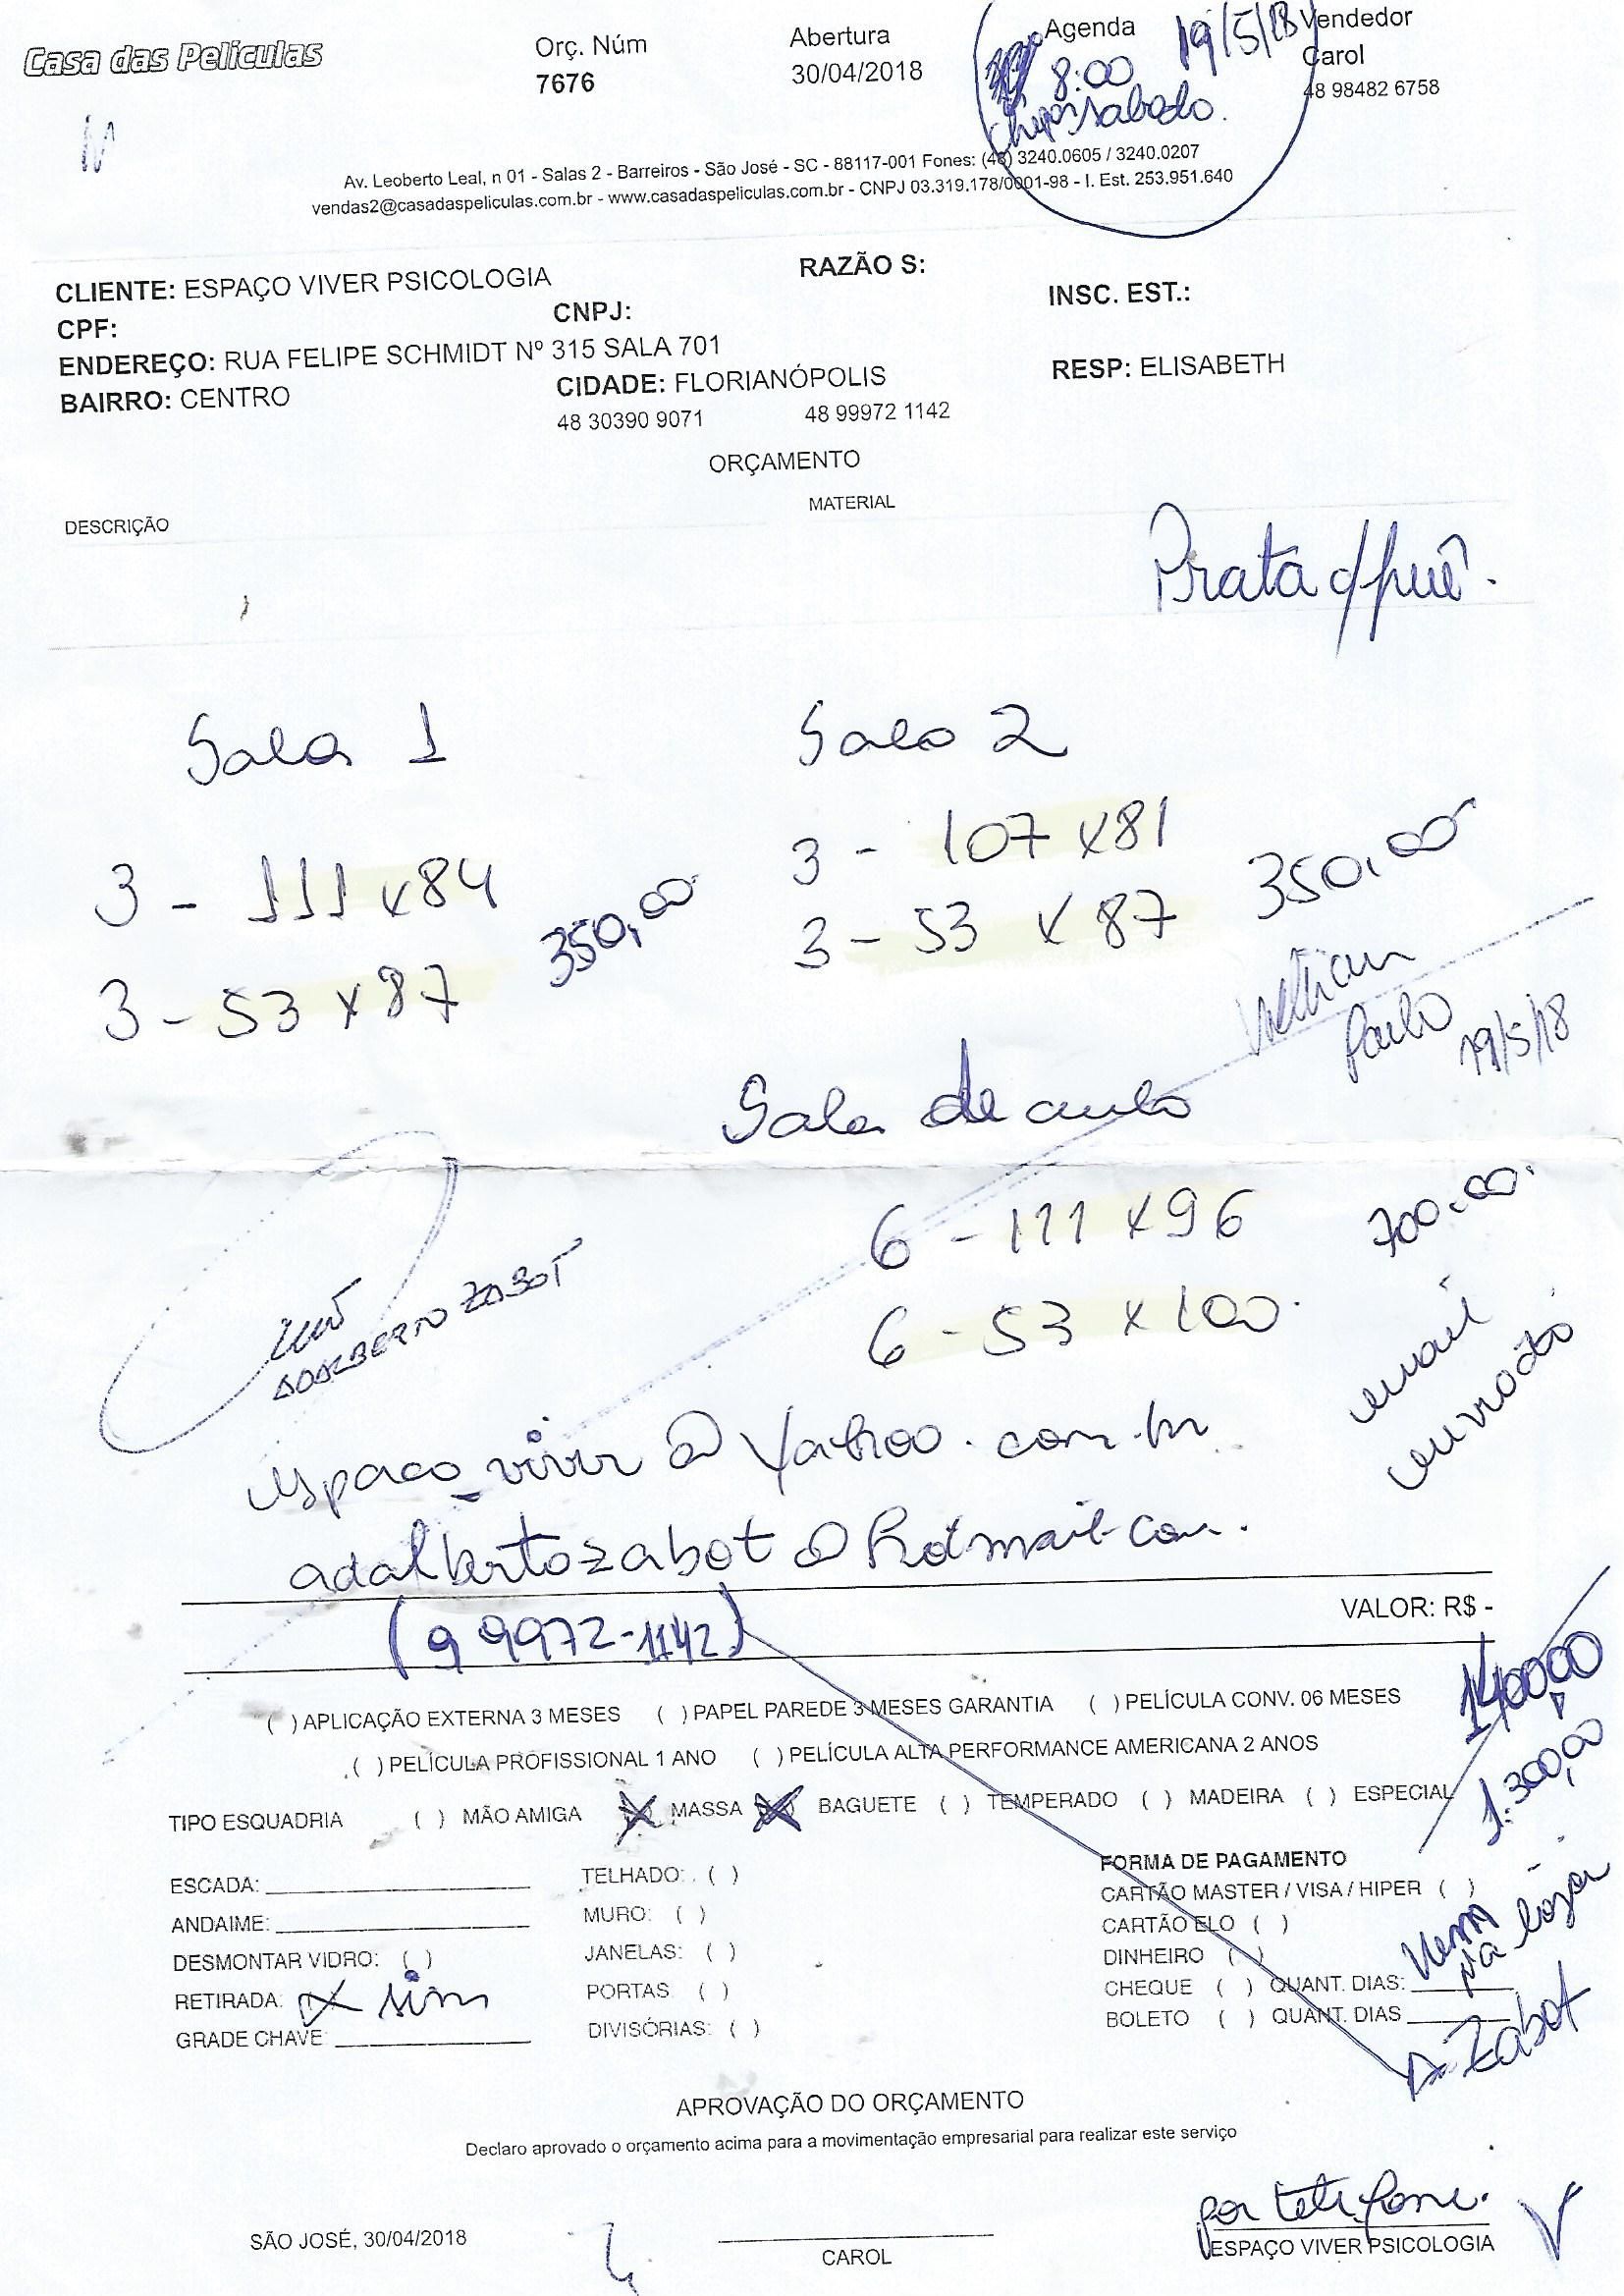 Casa das Películas
Orç. Núm
7676
Abertura
30/04/2018
Agenda
19/5/18
8:00
sabado.
Vendedor
Carol
48 98482 6758
Av. Leoberto Leal, n 01 - Salas 2 - Barreiros - São José - SC - 88117-001 Fones: (48) 3240.0605 / 3240.0207
vendas2@casadaspeliculas.com.br - www.casadaspeliculas.com.br - CNPJ 03.319.178/0001-98 - I. Est. 253.951.640
CLIENTE: ESPAÇO VIVER PSICOLOGIA
RAZÃO S:
CPF:
CNPJ:
INSC. EST.:
ENDEREÇO: RUA FELIPE SCHMIDT Nº 315 SALA 701
BAIRRO: CENTRO
CIDADE: FLORIANÓPOLIS
RESP: ELISABETH
48 30390 9071
48 99972 1142
ORÇAMENTO
DESCRIÇÃO
MATERIAL
Prata
Sala 1
3 - 111 x 84
3 - 53 x 87
350,00
Sala 2
3 - 107 x 81
3 - 53 x 87
350,00
Paulo
19/5/18
Sala de aula
6 - 111 x 96
6 - 53 x 100
700,00
email
enviado
ADALBERTO ZABOT
espaco_viver@yahoo.com.br
adalbertozabot@hotmail.com.
VALOR: R$ -
(9 9972-1142)
1400,00
1.300,00
( ) APLICAÇÃO EXTERNA 3 MESES ( ) PAPEL PAREDE 3 MESES GARANTIA ( ) PELÍCULA CONV. 06 MESES
( ) PELÍCULA PROFISSIONAL 1 ANO ( ) PELÍCULA ALTA PERFORMANCE AMERICANA 2 ANOS
TIPO ESQUADRIA ( ) MÃO AMIGA (X) MASSA (X) BAGUETE ( ) TEMPERADO ( ) MADEIRA ( ) ESPECIAL
ESCADA:
ANDAIME:
DESMONTAR VIDRO: ( )
RETIRADA: X sim
GRADE CHAVE:
TELHADO: ( )
MURO: ( )
JANELAS: ( )
PORTAS: ( )
DIVISÓRIAS: ( )
FORMA DE PAGAMENTO
CARTÃO MASTER / VISA / HIPER ( )
CARTÃO ELO ( )
DINHEIRO ( )
CHEQUE ( ) QUANT. DIAS:
BOLETO ( ) QUANT. DIAS
Vem
na loja
Zabot
APROVAÇÃO DO ORÇAMENTO
Declaro aprovado o orçamento acima para a movimentação empresarial para realizar este serviço
SÃO JOSÉ, 30/04/2018
CAROL
por telefone.
ESPAÇO VIVER PSICOLOGIA